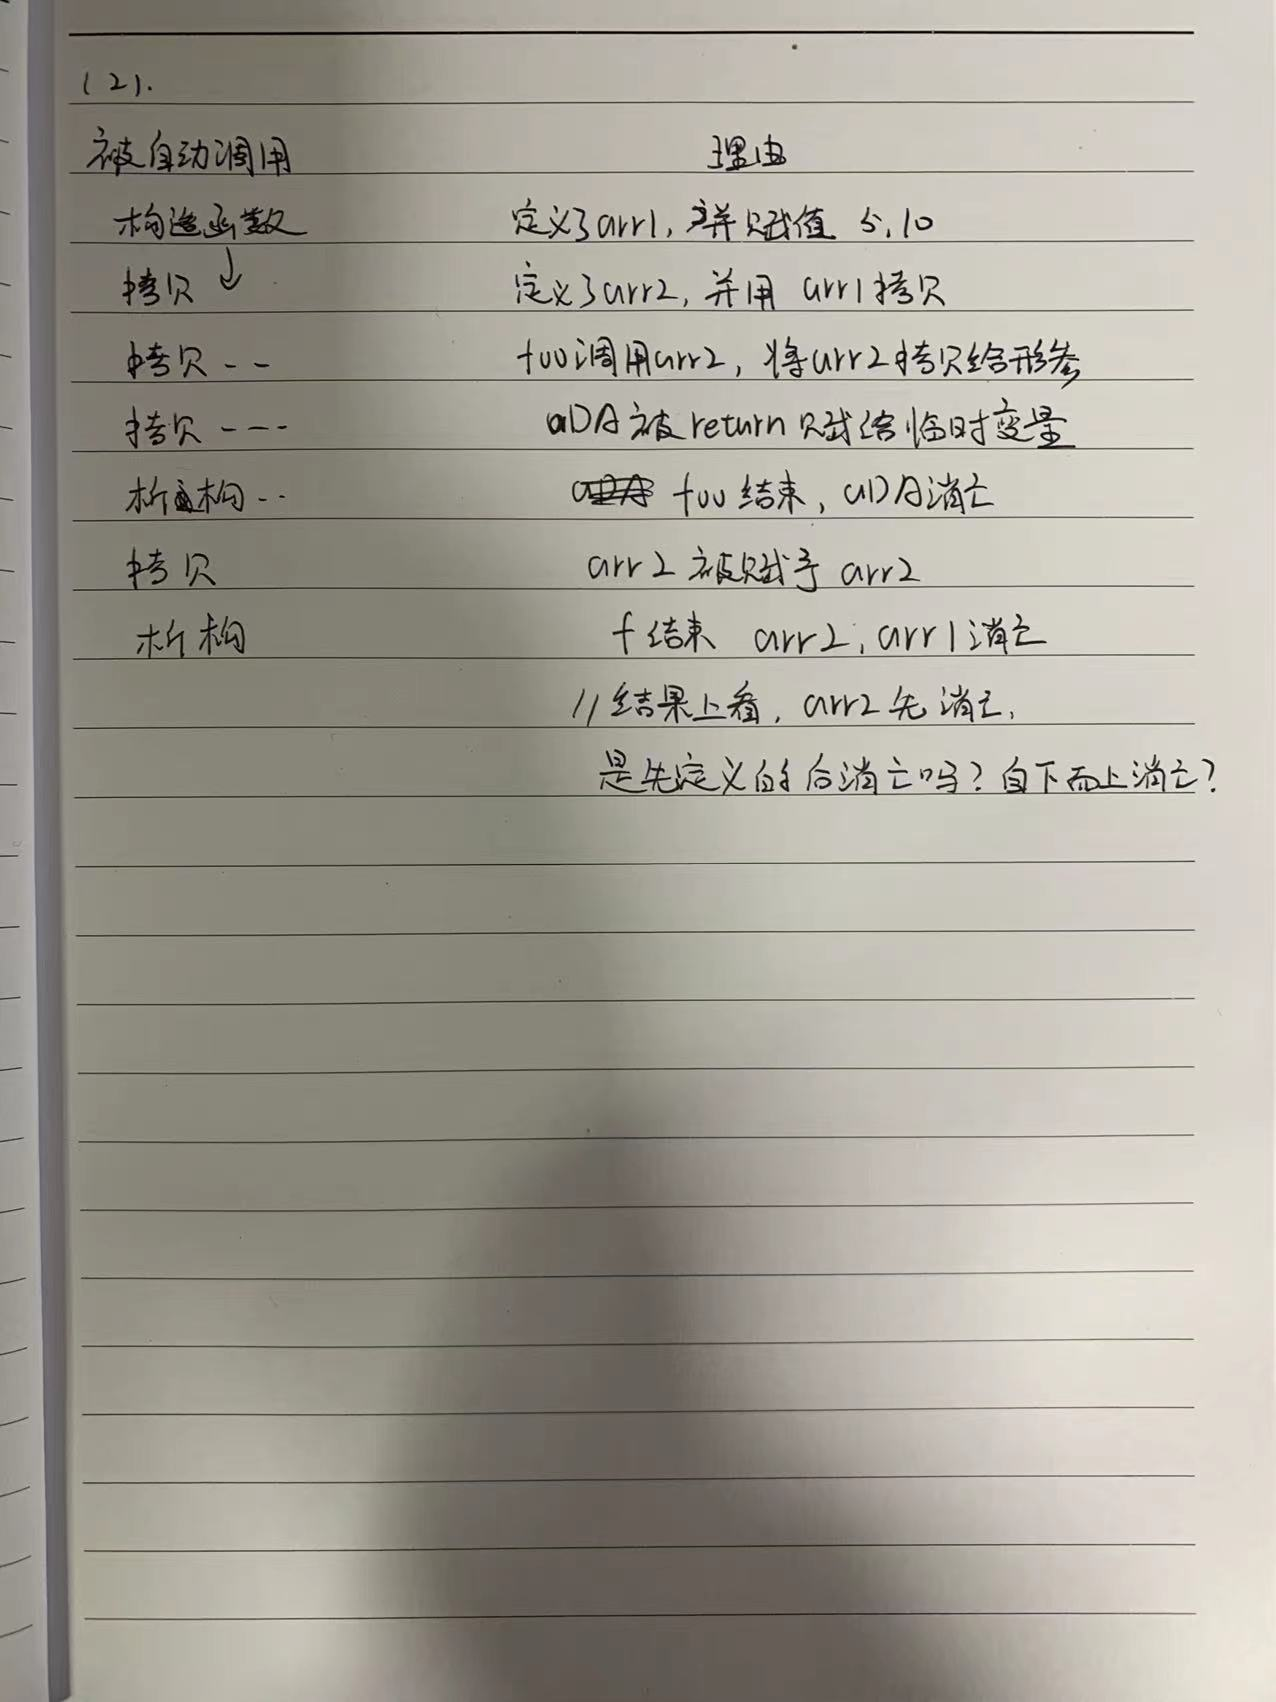 (2).
被自动调用 理由
构造函数 定义了arr1, 并赋值 5,10
拷贝 ↓ 定义了arr2, 并用 arr1拷贝
拷贝 - - foo调用arr2, 将arr2拷贝给形参
拷贝 - - - aDA被return 赋给临时变量
析构 - - foo 结束, aDA消亡
拷贝 arr2 被赋予 arr2
析构 f结束 arr2, arr1消亡
//结果上看, arr2先消亡,
是先定义的后消亡吗? 自下而上消亡?